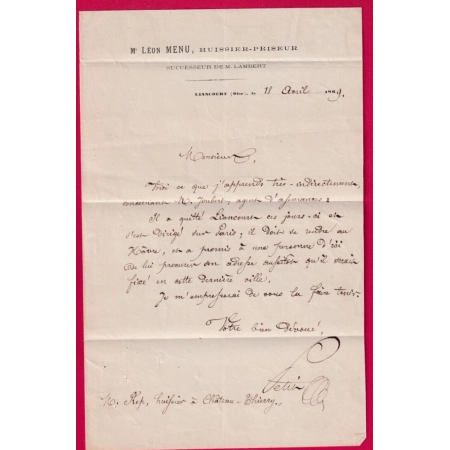 Mᵉ LÉON MENU, HUISSIER-PRISEUR
SUCCESSEUR DE M. LAMBERT
LIANCOURT (Oise), le 11 Avril 1889.
Monsieur
Voici ce que j'apprends très-indirectement
concernant M. Joubert, agent d'assurances :
Il a quitté Liancourt ces jours-ci et
s'est dirigé sur Paris ; il doit se rendre au
Hâvre, et a promis à une personne d'ici
de lui procurer son adresse aussitôt qu'il serait
fixé en cette dernière ville.
Je m'empresserai de vous la faire tenir.
Votre bien dévoué.
M. Rep, huissier à Château-Thierry.